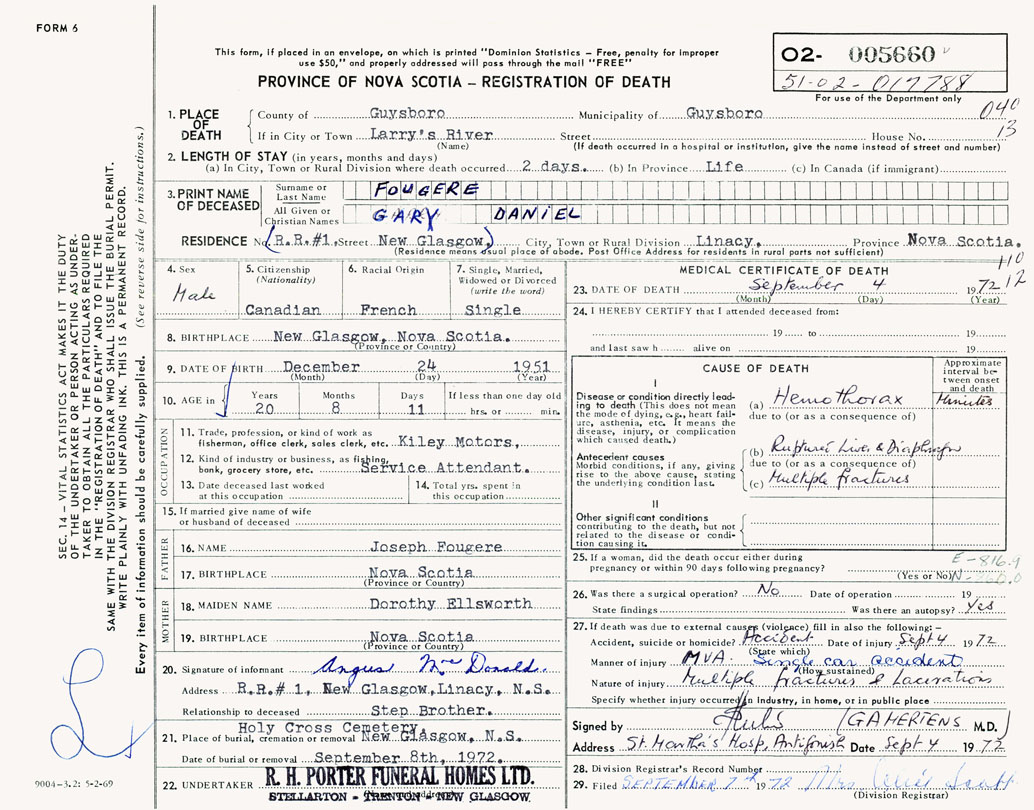 FORM 6
This form, if placed in an envelope, on which is printed "Dominion Statistics – Free, penalty for improper
use $50," and properly addressed will pass through the mail "FREE"
PROVINCE OF NOVA SCOTIA – REGISTRATION OF DEATH
02- 005660
51-02-017788
For use of the Department only
040
13
1. PLACE OF DEATH
County of Guysboro Municipality of Guysboro
If in City or Town Larry's River Street House No.
(Name) (If death occurred in a hospital or institution, give the name instead of street and number)
2. LENGTH OF STAY (in years, months and days)
(a) In City, Town or Rural Division where death occurred 2 days. (b) In Province Life (c) In Canada (if immigrant)
3. PRINT NAME OF DECEASED
Surname or Last Name FOUGERE
All Given or Christian Names GARY DANIEL
RESIDENCE No. (R.R.#1, Street New Glasgow,) City, Town or Rural Division Linacy, Province Nova Scotia.
(Residence means usual place of abode. Post Office Address for residents in rural parts not sufficient)
110
12
4. Sex Male
5. Citizenship (Nationality) Canadian
6. Racial Origin French
7. Single, Married, Widowed or Divorced (write the word) Single
8. BIRTHPLACE New Glasgow, Nova Scotia.
(Province or Country)
9. DATE OF BIRTH December 24 1951
(Month) (Day) (Year)
10. AGE in Years 20 Months 8 Days 11 If less than one day old hrs. or min.
OCCUPATION
11. Trade, profession, or kind of work as
fisherman, office clerk, sales clerk, etc. Kiley Motors,
12. Kind of industry or business, as fishing,
bank, grocery store, etc. Service Attendant.
13. Date deceased last worked
at this occupation
14. Total yrs. spent in
this occupation
15. If married give name of wife
or husband of deceased
FATHER
16. NAME Joseph Fougere
17. BIRTHPLACE Nova Scotia
(Province or Country)
MOTHER
18. MAIDEN NAME Dorothy Ellsworth
19. BIRTHPLACE Nova Scotia
(Province or Country)
20. Signature of informant Angus McDonald.
Address R.R.# 1, New Glasgow, Linacy, N.S.
Relationship to deceased Step Brother.
Holy Cross Cemetery
21. Place of burial, cremation or removal New Glasgow, N.S.
Date of burial or removal September 8th, 1972.
22. UNDERTAKER R. H. PORTER FUNERAL HOMES LTD.
STELLARTON - TRENTON - NEW GLASGOW
MEDICAL CERTIFICATE OF DEATH
23. DATE OF DEATH September 4 1972
(Month) (Day) (Year)
24. I HEREBY CERTIFY that I attended deceased from:
19 to 19
and last saw h alive on 19
CAUSE OF DEATH
Approximate interval between onset and death
I
Disease or condition directly leading to death (This does not mean the mode of dying, e.g., heart failure, asthenia, etc. It means the disease, injury, or complication which caused death.)
(a) Hemothorax Minutes
due to (or as a consequence of)
Antecedent causes
Morbid conditions, if any, giving rise to the above cause, stating the underlying condition last.
(b) Ruptured Liver & Diaphragm
due to (or as a consequence of)
(c) Multiple fractures
II
Other significant conditions
contributing to the death, but not related to the disease or condition causing it.
25. If a woman, did the death occur either during
pregnancy or within 90 days following pregnancy?
(Yes or No)
E-816.9
26. Was there a surgical operation? No Date of operation 19
State findings Was there an autopsy? Yes
27. If death was due to external causes (violence) fill in also the following:–
Accident, suicide or homicide? Accident Date of injury Sept 4 1972
(State which)
Manner of injury MVA. Single car accident
(How sustained)
Nature of injury Multiple fractures & Lacerations
Specify whether injury occurred in Industry, in home, or in public place
Signed by (GAHERTENS) M.D.
Address St. Martha's Hosp, Antigonish Date Sept 4 1972
28. Division Registrar's Record Number
29. Filed SEPTEMBER 7th 1972 Mrs
(Division Registrar)
SEC. 14 – VITAL STATISTICS ACT MAKES IT THE DUTY
OF THE UNDERTAKER OR PERSON ACTING AS UNDER-
TAKER TO OBTAIN ALL THE PARTICULARS REQUIRED
IN THE "REGISTRATION OF DEATH" AND TO FILE THE
SAME WITH THE DIVISION REGISTRAR WHO SHALL ISSUE THE BURIAL PERMIT.
WRITE PLAINLY WITH UNFADING INK. THIS IS A PERMANENT RECORD.
Every item of information should be carefully supplied. (See reverse side for instructions.)
9004-3.2: 5-2-69